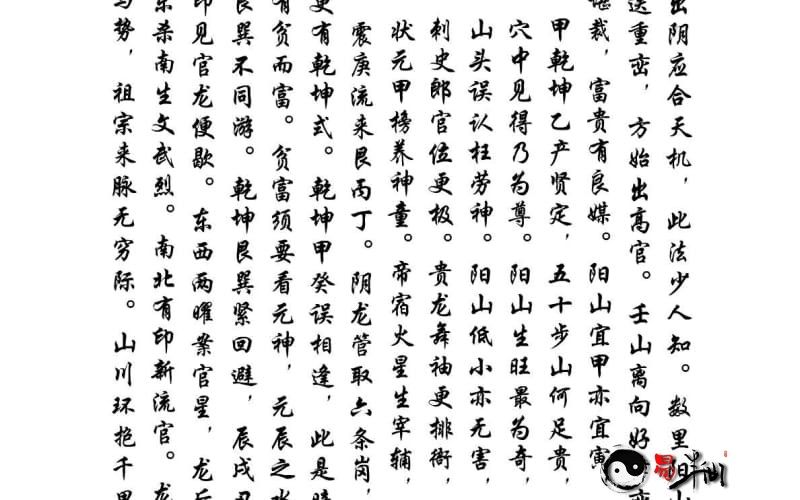 出阴应合天机，此法少人知。数里
送重峦，方始出高官。壬山离向好
裁，富贵有良媒。阳山宜甲亦宜寅
甲乾坤乙产贤定，五十步山何足贵，
穴中见得乃为尊。阳山生旺最为奇，
山头误认枉劳神。阳山低小亦无害，
刺史郎官位更极。贵龙舞袖更排衙，
状元甲榜养神童。帝宿火星生宰辅，
震庚流来艮丙丁。阴龙管取六条岗，
更有乾坤式。乾坤甲癸误相逢，此是
有贫而富。贫富须要看元神，元辰之水
艮巽不同游。乾坤艮巽紧回避，辰戌丑
印见官龙便歇。东西两曜案官星，龙后
东杀南生文武烈。南北有印新流官。龙
与势，祖宗来脉无穷际。山川环抱千里
易